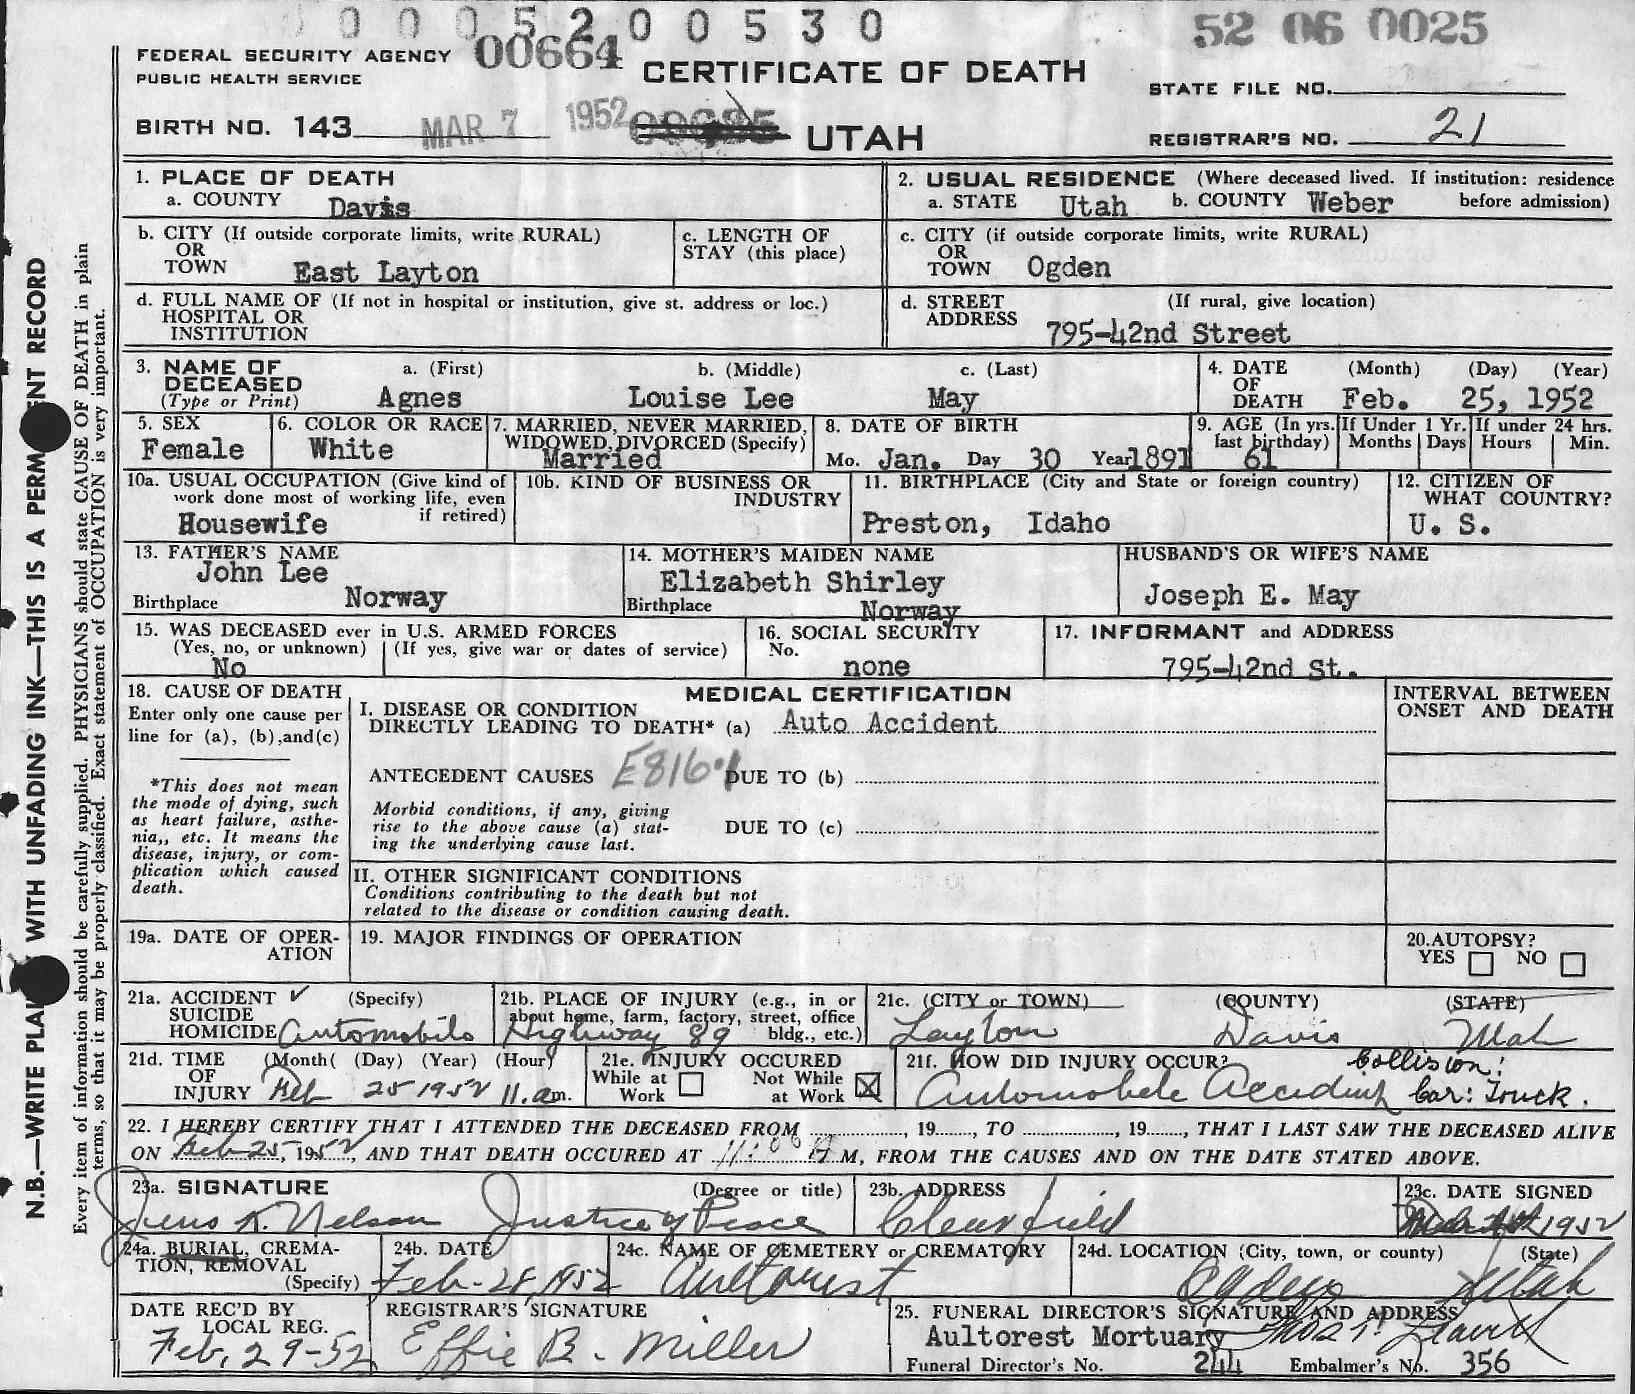 0 0 0 5 2 0 0 5 3 0
52 06 0025
FEDERAL SECURITY AGENCY 00664
PUBLIC HEALTH SERVICE
CERTIFICATE OF DEATH
STATE FILE NO.
BIRTH NO. 143 MAR 7 1952 UTAH
REGISTRAR'S NO. 21
N.B.—WRITE PLAI WITH UNFADING INK—THIS IS A PERM ENT RECORD
Every item of information should be carefully supplied. PHYSICIANS should state CAUSE OF DEATH in plain
terms, so that it may be properly classified. Exact statement of OCCUPATION is very important.
1. PLACE OF DEATH
a. COUNTY Davis
2. USUAL RESIDENCE (Where deceased lived. If institution: residence
a. STATE Utah b. COUNTY Weber before admission)
b. CITY (If outside corporate limits, write RURAL)
OR
TOWN East Layton
c. LENGTH OF
STAY (this place)
c. CITY (if outside corporate limits, write RURAL)
OR
TOWN Ogden
d. FULL NAME OF (If not in hospital or institution, give st. address or loc.)
HOSPITAL OR
INSTITUTION
d. STREET (If rural, give location)
ADDRESS
795-42nd Street
3. NAME OF a. (First) b. (Middle) c. (Last)
DECEASED
(Type or Print) Agnes Louise Lee May
4. DATE (Month) (Day) (Year)
OF
DEATH Feb. 25, 1952
5. SEX
Female
6. COLOR OR RACE
White
7. MARRIED, NEVER MARRIED,
WIDOWED, DIVORCED (Specify)
Married
8. DATE OF BIRTH
Mo. Jan. Day 30 Year 1891
9. AGE (In yrs.
last birthday)
61
If Under 1 Yr.
Months Days
If under 24 hrs.
Hours Min.
10a. USUAL OCCUPATION (Give kind of
work done most of working life, even
if retired)
Housewife
10b. KIND OF BUSINESS OR
INDUSTRY
11. BIRTHPLACE (City and State or foreign country)
Preston, Idaho
12. CITIZEN OF
WHAT COUNTRY?
U. S.
13. FATHER'S NAME
John Lee
Birthplace Norway
14. MOTHER'S MAIDEN NAME
Elizabeth Shirley
Birthplace Norway
HUSBAND'S OR WIFE'S NAME
Joseph E. May
15. WAS DECEASED ever in U.S. ARMED FORCES
(Yes, no, or unknown) (If yes, give war or dates of service)
No
16. SOCIAL SECURITY
No.
none
17. INFORMANT and ADDRESS
795-42nd St.
18. CAUSE OF DEATH
Enter only one cause per
line for (a), (b), and (c)
*This does not mean
the mode of dying, such
as heart failure, asthe-
nia,, etc. It means the
disease, injury, or com-
plication which caused
death.
MEDICAL CERTIFICATION
I. DISEASE OR CONDITION
DIRECTLY LEADING TO DEATH* (a) Auto Accident
ANTECEDENT CAUSES E816.1 DUE TO (b)
Morbid conditions, if any, giving
rise to the above cause (a) stat-
ing the underlying cause last.
DUE TO (c)
II. OTHER SIGNIFICANT CONDITIONS
Conditions contributing to the death but not
related to the disease or condition causing death.
INTERVAL BETWEEN
ONSET AND DEATH
19a. DATE OF OPER-
ATION
19. MAJOR FINDINGS OF OPERATION
20. AUTOPSY?
YES NO
21a. ACCIDENT ✓ (Specify)
SUICIDE
HOMICIDE Automobile
21b. PLACE OF INJURY (e.g., in or
about home, farm, factory, street, office
bldg., etc.)
Highway 89
21c. (CITY or TOWN) (COUNTY) (STATE)
Layton Davis Utah
21d. TIME (Month( (Day) (Year) (Hour)
OF
INJURY Feb 25 1952 11. am.
21e. INJURY OCCURED
While at Work
Not While at Work
21f. HOW DID INJURY OCCUR? Collision:
Automobile Accident Car: Truck.
22. I HEREBY CERTIFY THAT I ATTENDED THE DECEASED FROM , 19 , TO , 19 , THAT I LAST SAW THE DECEASED ALIVE
ON Feb 25, 1952, AND THAT DEATH OCCURED AT 11:00 A M, FROM THE CAUSES AND ON THE DATE STATED ABOVE.
23a. SIGNATURE (Degree or title)
Nelson Justice of Peace
23b. ADDRESS
Clearfield
23c. DATE SIGNED
1952
24a. BURIAL, CREMA-
TION, REMOVAL
(Specify)
24b. DATE
Feb-28, 1952
24c. NAME OF CEMETERY or CREMATORY
Aultorest
24d. LOCATION (City, town, or county) (State)
Ogden Utah
DATE REC'D BY
LOCAL REG.
Feb, 29-52
REGISTRAR'S SIGNATURE
Effie B. Miller
25. FUNERAL DIRECTOR'S SIGNATURE AND ADDRESS
Aultorest Mortuary
Funeral Director's No. 244 Embalmer's No. 356